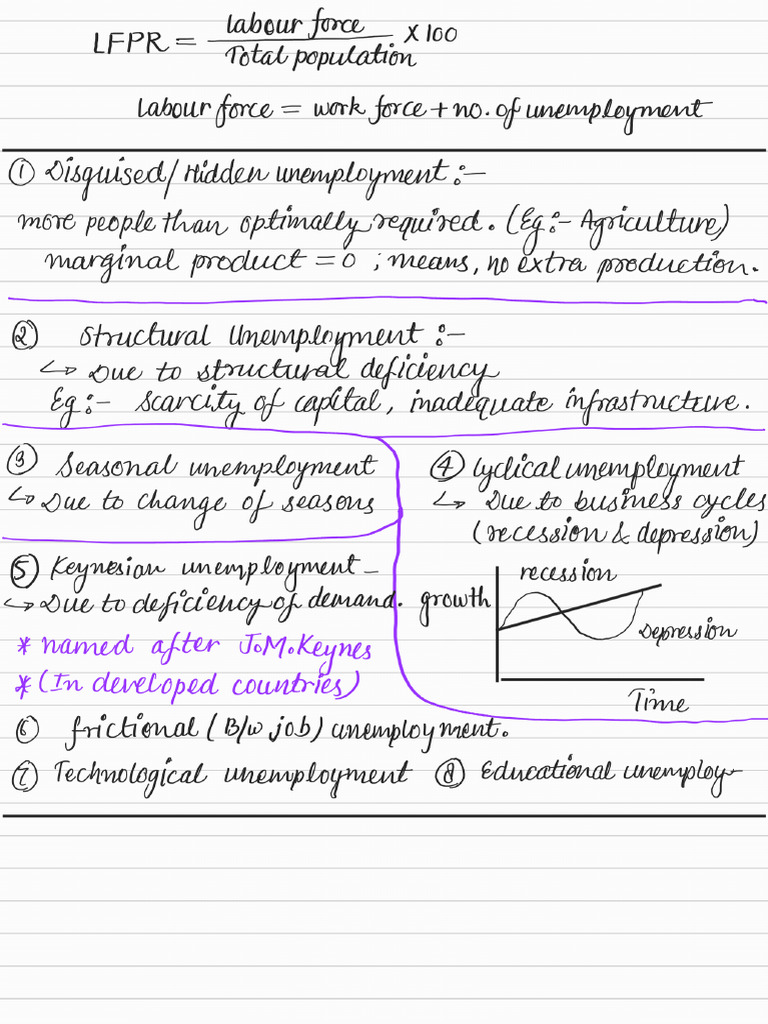 LFPR = labour force / Total population X 100
Labour force = work force + no. of unemployment
① Disguised/Hidden unemployment :-
more people than optimally required. (Eg:- Agriculture)
marginal product = 0 ; means, no extra production.
② Structural Unemployment :-
↳ Due to structural deficiency
Eg:- scarcity of capital, inadequate infrastructure.
③ Seasonal unemployment
↳ Due to change of seasons
④ Cyclical unemployment
↳ Due to business cycles
(recession & depression)
growth
recession
Depression
Time
⑤ Keynesian unemployment -
↳ Due to deficiency of demand.
* named after J.M.Keynes
* (In developed countries)
⑥ frictional (B/w job) unemployment.
⑦ Technological unemployment ⑧ Educational unemploy-